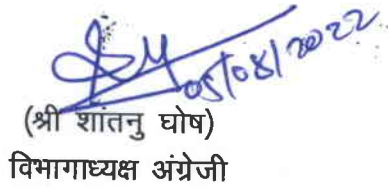 05/08/2022
(श्री शांतनु घोष)
विभागाध्यक्ष अंग्रेजी